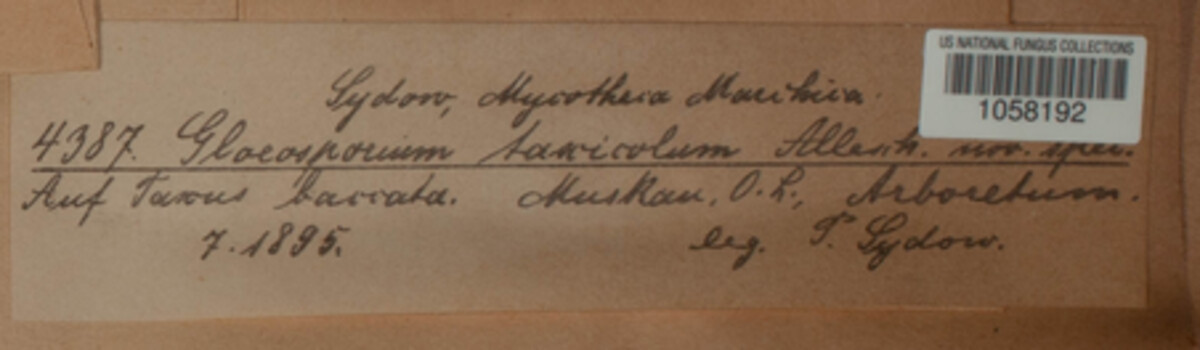 US NATIONAL FUNGUS COLLECTIONS
1058192
Sydow, Mycotheca Marchica.
4387. Gloeosporium taxicolum Allesch. nov. spec.
Auf Taxus baccata. Muskau, O. L., Arboretum.
7. 1895. leg. P. Sydow.